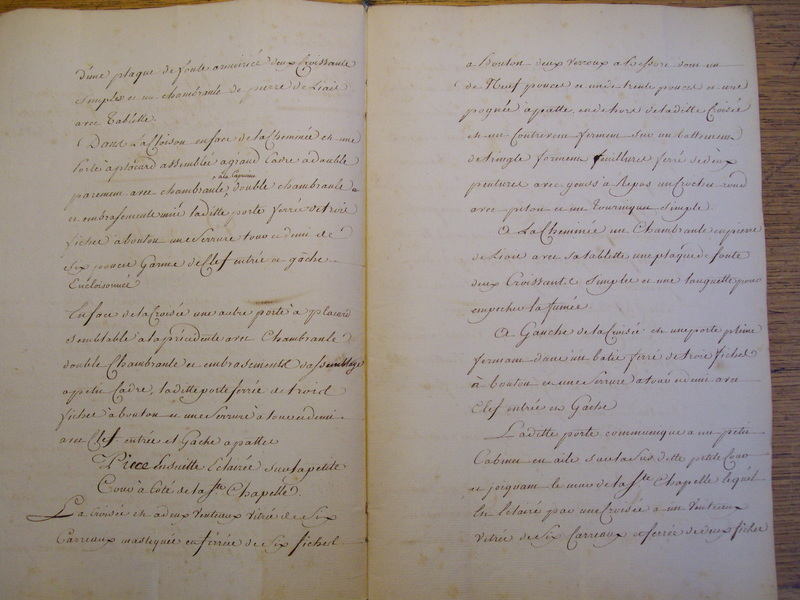 d'une plaque de fonte armoiriée deux Croissants
simples et un chambranle de pierre de Liais
avec Tablette.
Dans La Cloison en face de la Cheminée est une
Porte à placard assemblée a grand Cadre a double
parement avec chambranle, double chambranle
a la Capucine
et embrasements unie laditte porte ferrée de trois
fiches a bouton une Serrure tour et demi de
Six pouces Garnie de Clef entrée et gâche
Encloisonnée
En face de la Croisée une autre porte à placard
semblable à la précédente avec Chambranle
double Chambranle et embrasements d'assemblage
a petit Cadre, laditte porte ferrée de trois
fiches a bouton et une Serrure à tour et demi
avec Clef entrée et Gache a patte
Piece ensuitte Eclairée sur la petite
Cour à Côté de la Ste Chapelle.
La croisée est a deux Venteaux vitrée de Six
Carreaux mastiqués et ferrée de Six fiches
a bouton deux verroux a Ressorts dont un
de Neuf pouces et un de trente pouces et une
pognée a patte, en dehors de laditte Croisée
est un Contrevent fermant sur un battement
de tringle formant feuillures ferré de deux
pentures avec gonds a Repos un Crochet rond
avec piton et un Tourniquet simple.
A La Cheminée un Chambranle en pierre
de Liais avec sa tablette une plaque de fonte
deux Croissants simples et une languette pour
empecher la fumée.
A Gauche de la Croisée est une porte pleine
fermant dans un batis ferré de trois fiches
à bouton et une Serrure a tour et demi avec
Clef entrée et Gache
Laditte porte communique a un petit
Cabinet en aile sur la Susditte petite Cour
et joignant le mur de la Ste Chapelle lequel
Est Eclairé par une Croisée a un Venteaux
vitrée de Six Carreaux et ferrée de deux fiches